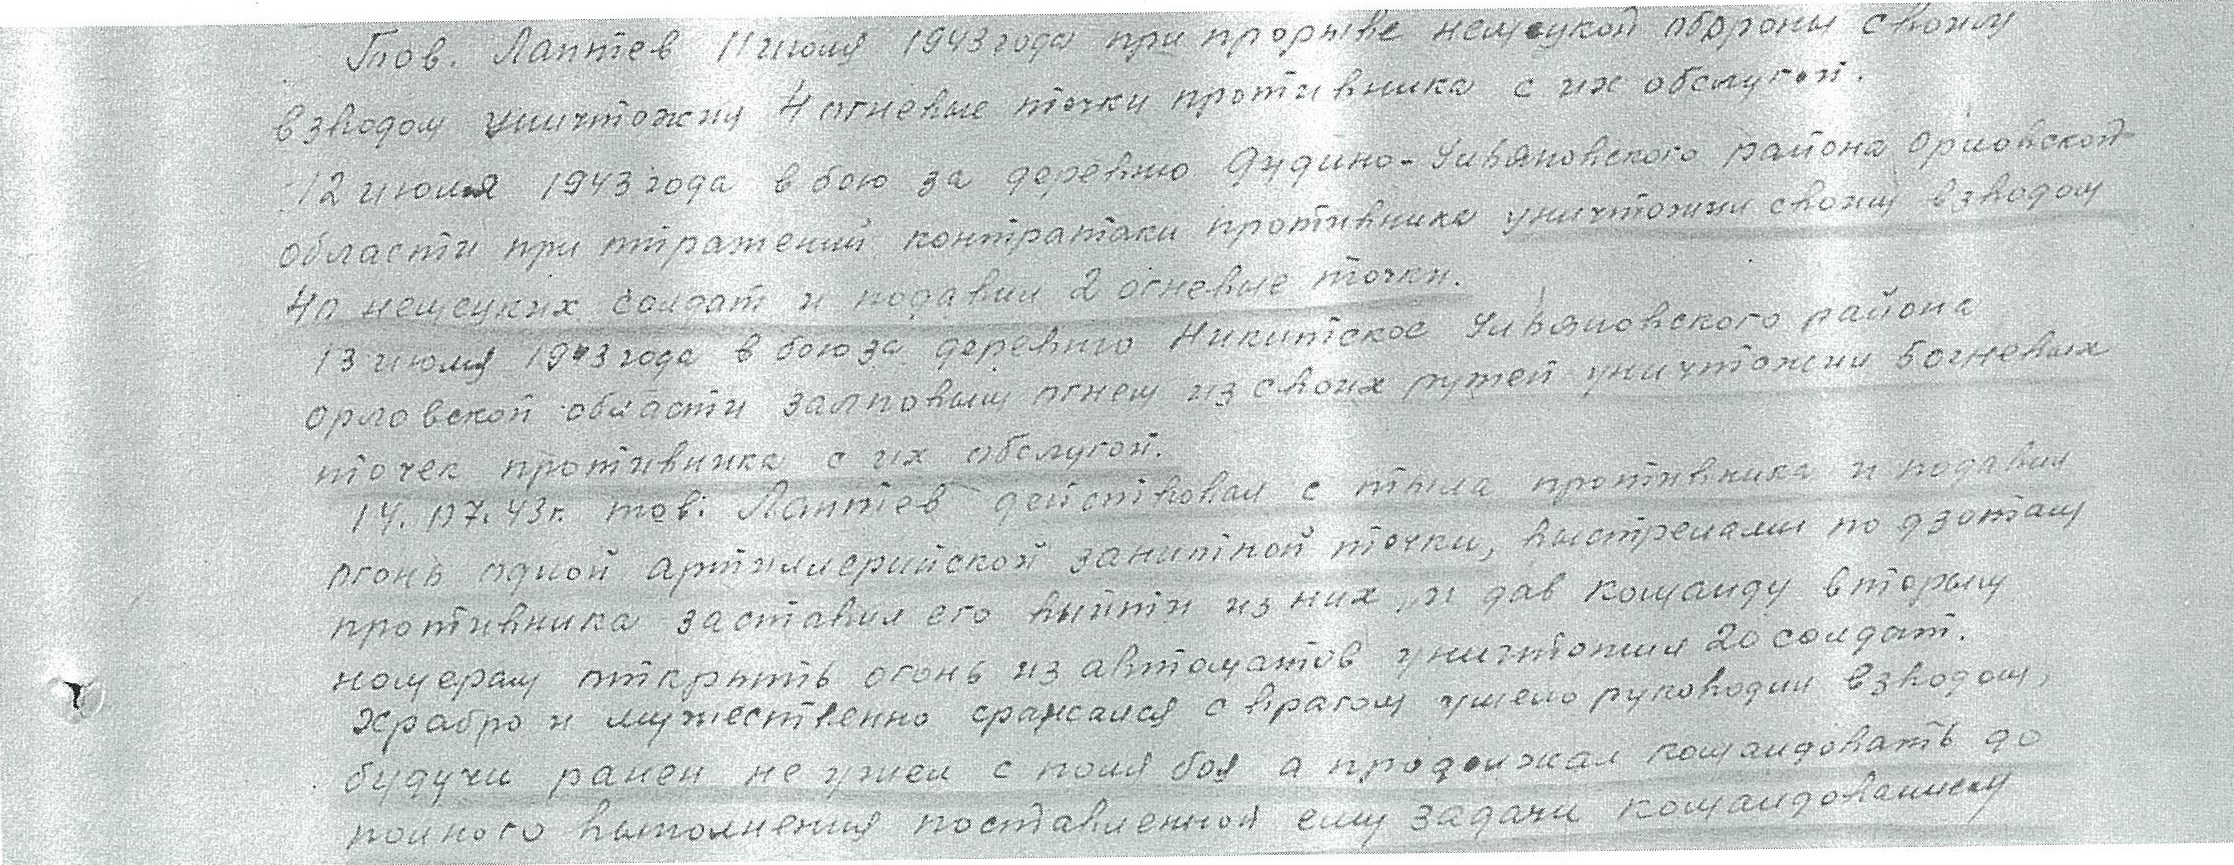 Тов. Лаптев 11 июля 1943 года при прорыве немецкой обороны своим
взводом уничтожил 4 огневые точки противника с их обслугой.
12 июля 1943 года в бою за деревню Дудино-Ульяновского района Орловской
области при отражений контратаки противника уничтожил своим взводом
40 немецких солдат и подавил 2 огневые точки.
13 июля 1943 года в бою за деревню Никитское Ульяновского района
Орловской области залповым огнем из своих ружей уничтожил 5 огневых
точек противника с их обслугой.
14.07.43г. тов. Лаптев действовал с тыла противника и подавил
огонь одной артиллерийской зенитной точки, выстрелами по дзотам
противника заставил его выйти из них, и дав команду вторым
номерам открыть огонь из автоматов уничтожил 20 солдат.
Храбро и мужественно сражался с врагом умело руководил взводом,
будучи ранен не ушел с поля боя а продолжал командовать до
полного выполнения поставленной ему задачи командованием